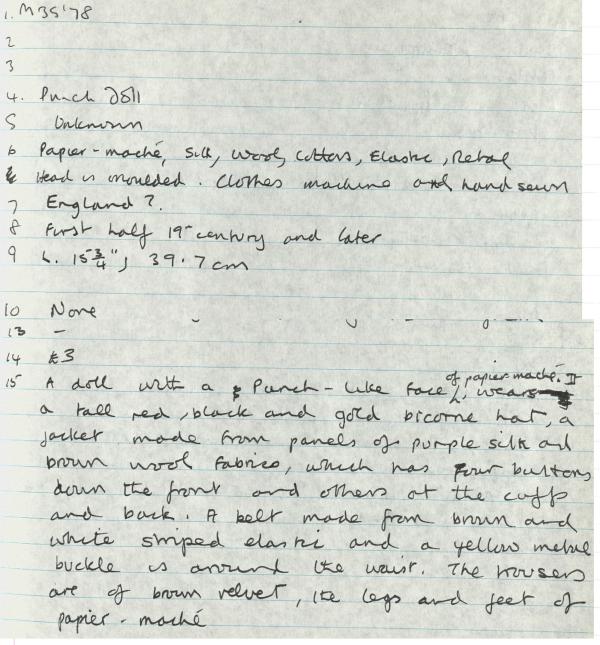 1. M35'78
2
3
4. Punch doll
5 Unknown
6 Papier-maché, Silk, Wool, Cottons, Elastic, Metal
Head is moulded. Clothes machine and hand sewn
7 England?
8 First half 19th century and later
9 L. 15 3/4", 39.7 cm
10 None
13 -
14 £3
15 A doll with a Punch-like face of papier maché. It wears
a tall red, black and gold bicorne hat, a
jacket made from panels of purple silk and
brown wool fabrics, which has four buttons
down the front and others at the cuffs
and back. A belt made from brown and
white striped elastic and a yellow metal
buckle is around the waist. The trousers
are of brown velvet, the legs and feet of
papier-maché